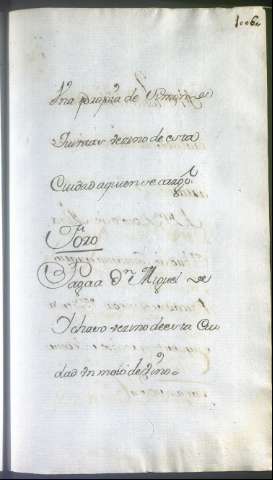 1006
Vña propria de Simón de
Guimar vecino de esta
Ciudad a quien se cargó.
Toro
Pagará Dn Miguel de
Ychaso vecino de esta Ciu
dad un moio de vino.